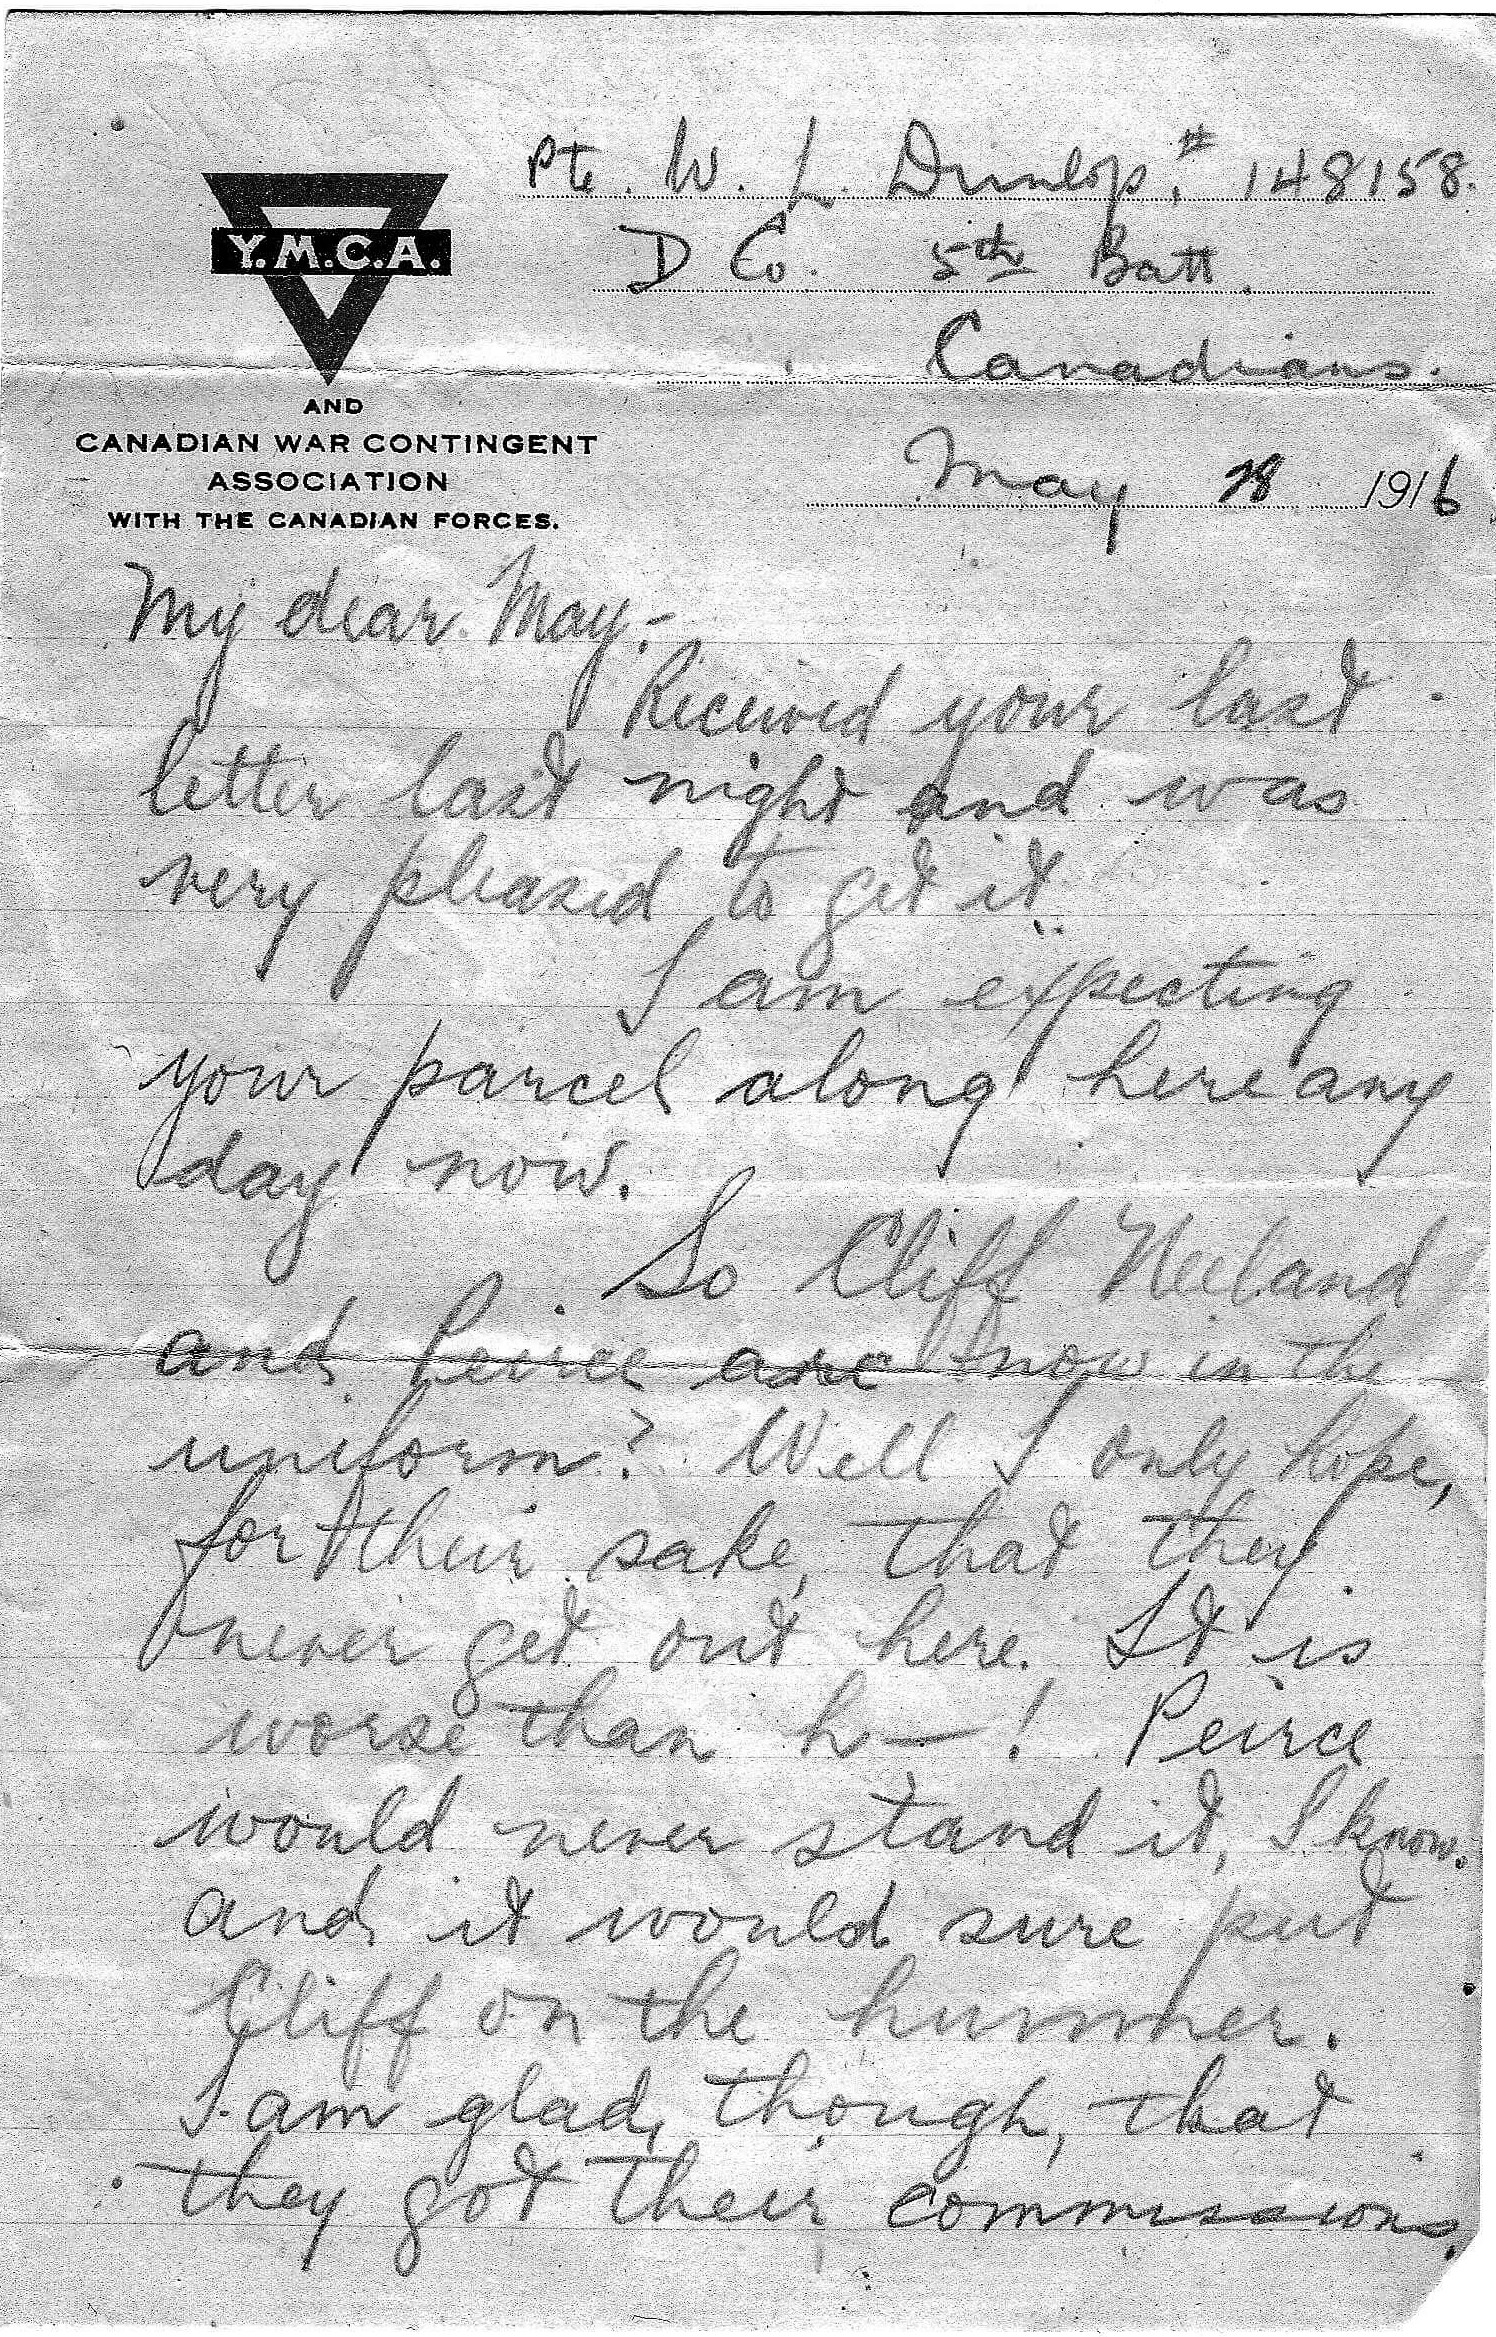 Pte. W. L. Dunlop, # 148158.
Y.M.C.A.
D Co. 5th Batt.
Canadians.
AND
CANADIAN WAR CONTINGENT
ASSOCIATION
WITH THE CANADIAN FORCES.
May 1916
My dear May:-
Received your last
letter last night and was
very pleased to get it.
I am expecting
your parcel along here any
day now.
So Cliff Neiland
and Peirce are now in the
uniform? Well I only hope,
for their sake, that they
never get out here. It is
worse than h—! Peirce
would never stand it, I know.
and it would sure put
Cliff on the hummer.
I am glad, though, that
they got their commissions.